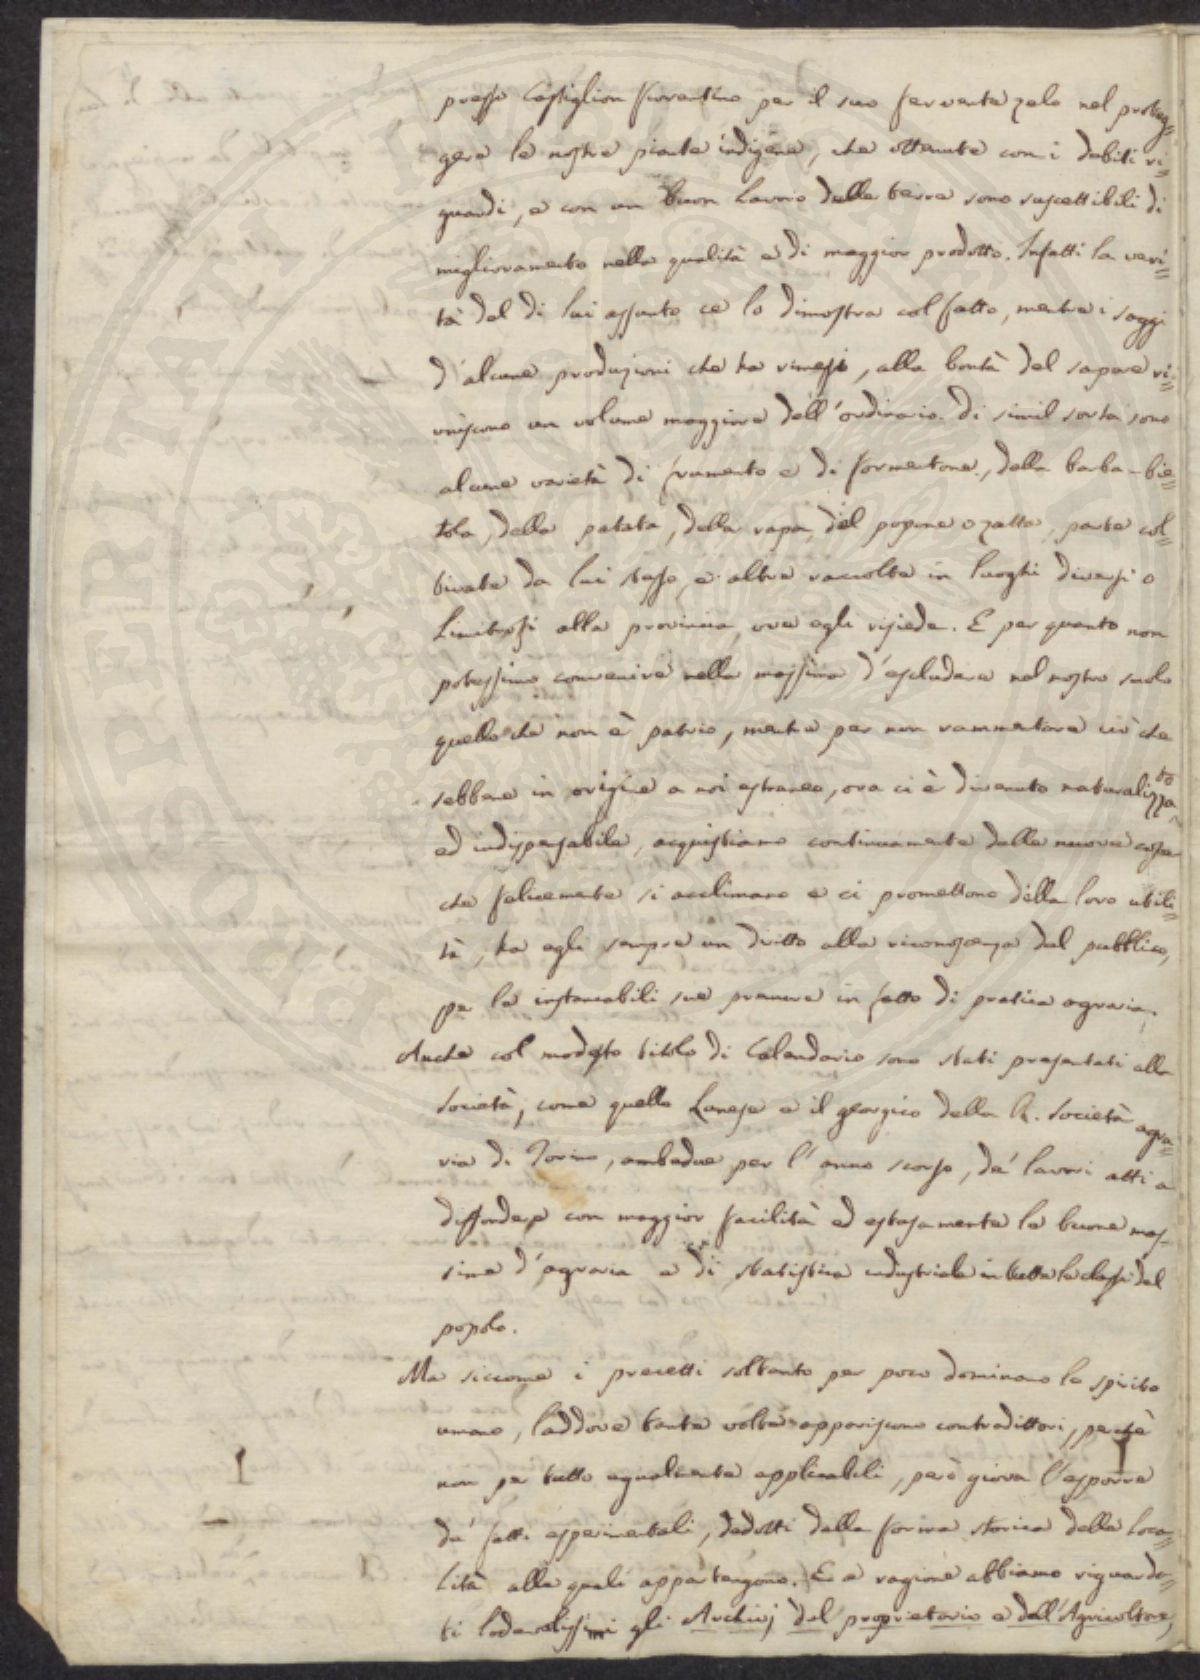 presso Castiglion Fiorentino per il suo fervente zelo nel proteg=
gere le nostre piante indigene, che ottenute con i debiti ri=
guardi, e con un buon lavoro della terra sono suscettibili di
miglioramento nella qualità e di maggior prodotto. Infatti la veri=
tà del di lui assunto ce lo dimostra col fatto, mentre i saggi
d'alcune produzioni che ha rimesse, alla bontà del sapore ri=
uniscono un volume maggiore dell'ordinario. Di simil sorta sono
alcune varietà di frumento e di formentone, della barba-bie=
tola, della patata, della rapa, del popone o zatta, parte col=
tivate da lui stesso, e altre raccolte in luoghi diversi o
limitrofi alla provincia, ove egli risiede. E per quanto non
potessimo convenire nella massima d'escludere nel nostro suolo
quello che non è patrio, mentre per non rammentare ciò che
sebbene in origine a noi estraneo, ora ci è divenuto naturalizzato
ed indispensabile, acquistiamo continuamente delle nuove cose
che felicemente si acclimano e ci promettono della loro utili=
tà, ha egli sempre un dritto alla riconoscenza del pubblico,
per le instancabili sue premure in fatto di pratica agraria.
Anche col modesto titolo di Calendario sono stati presentati alla
Società, come quello Lunese e il georgico della R. Società agra=
ria di Torino, ambedue per l'anno scorso, de' lavori atti a
diffondere con maggior facilità ed estesamente le buone mas=
sime d'agraria e di statistica industriale in tutte le classi del
popolo.
Ma siccome i precetti soltanto per poco dominano lo spirito
umano, laddove tante volte appariscono contradittori, perchè
non per tutto egualmente applicabili, però giova l'esporre
de' fatti esperimentali, dedotti dalla forma storica delle loca=
lità alle quali appartengono. E a ragione abbiamo riguarda=
ti lodevolissimi gli Archivj del proprietario e dell'Agricoltore,